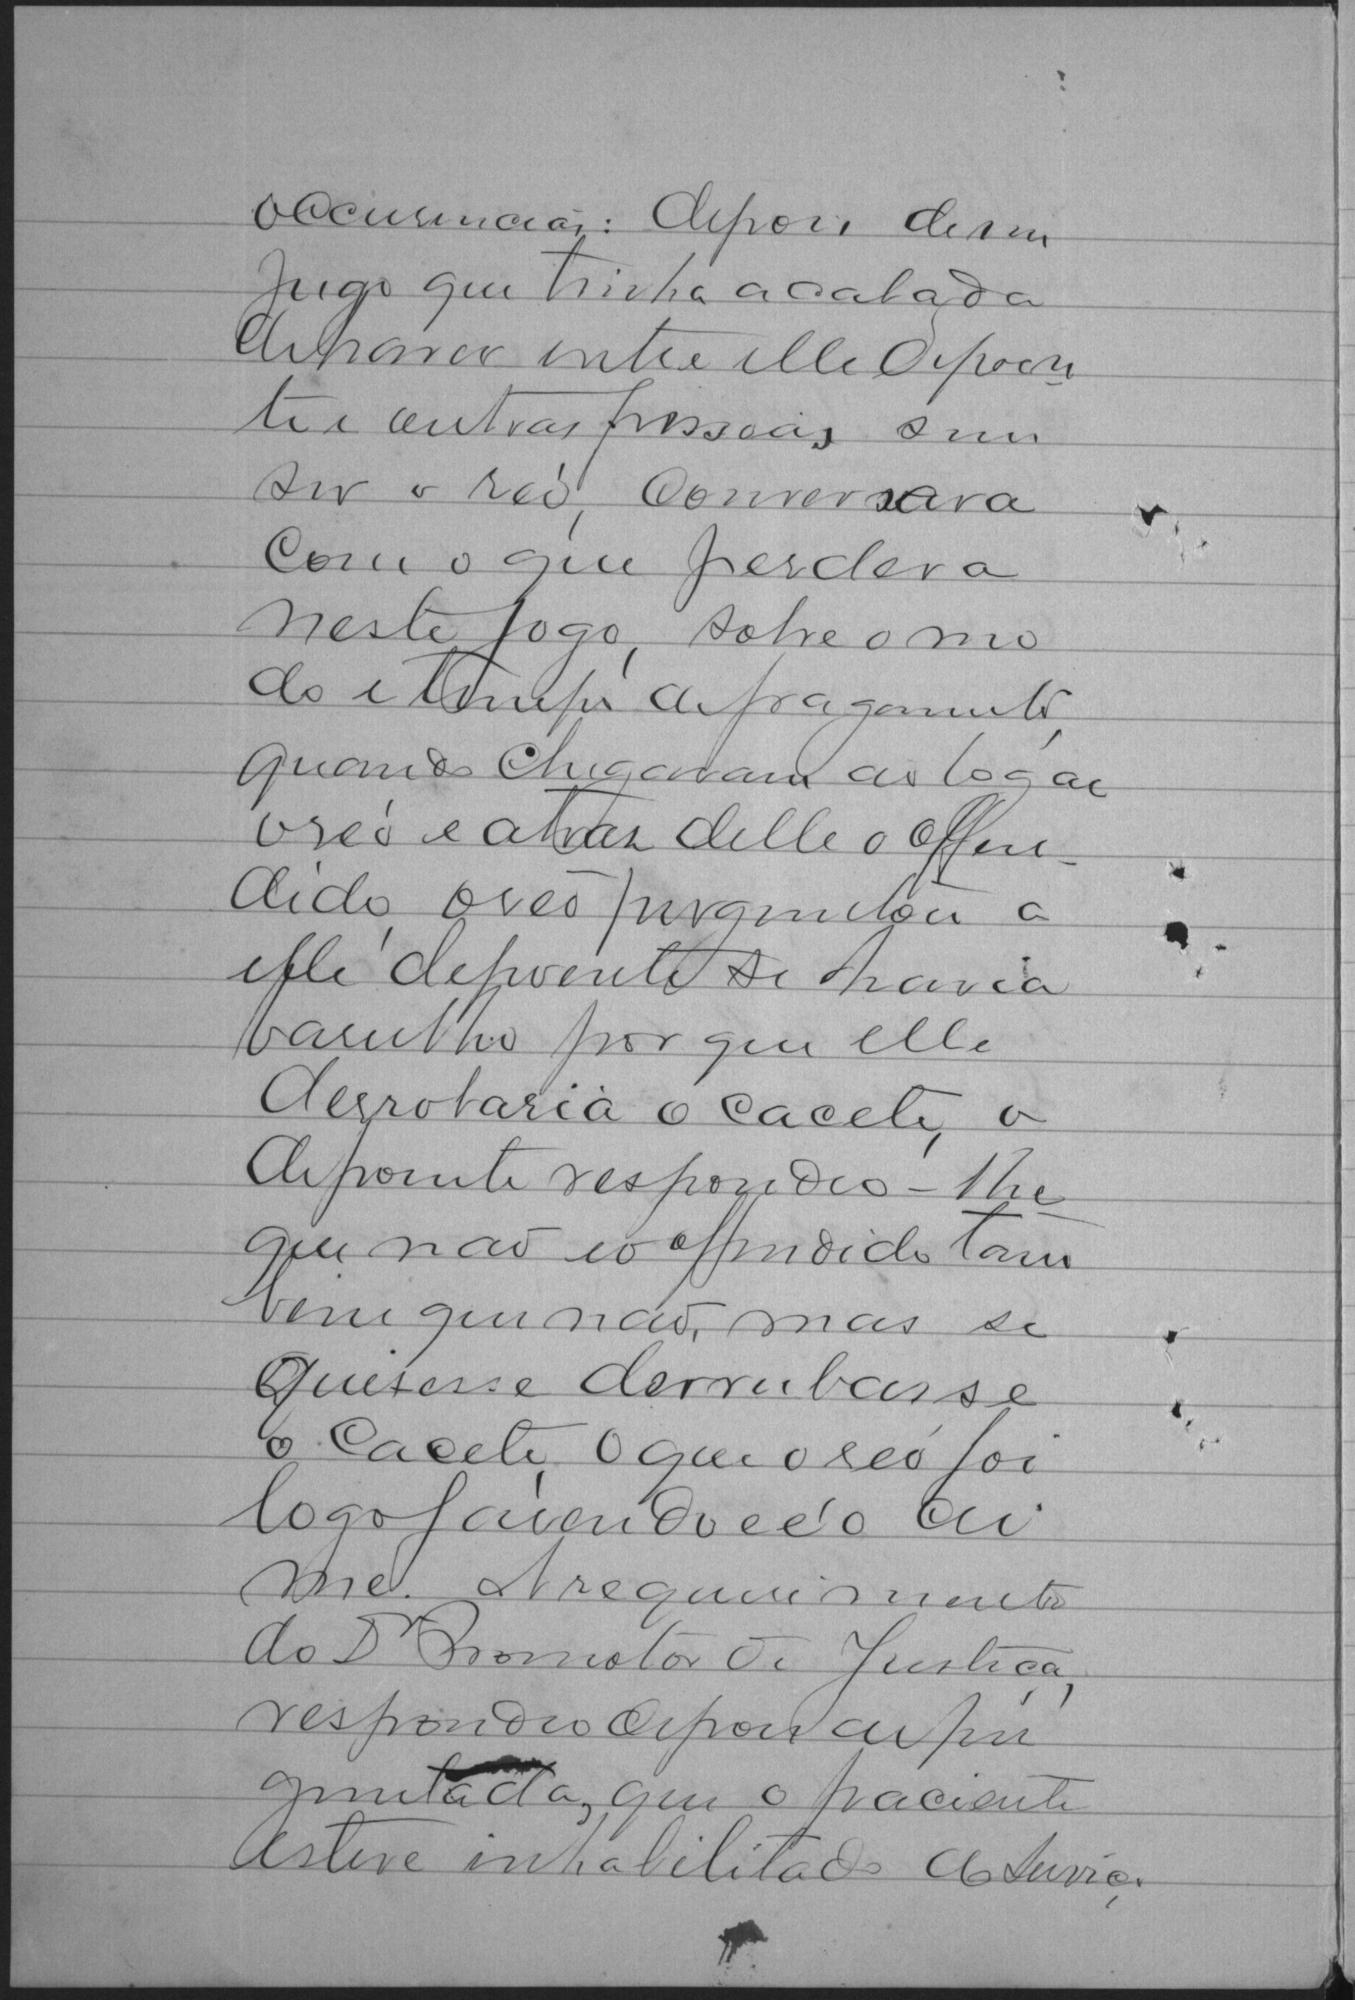 occurencias: depois de um
jogo que tinha acabada
de haver entre elle depoen
te e outras pessoas, sem
ser o reó, conversava
com o que perdera
neste jogo, sobre o mo
do e tempo de pagamento,
quando chegavam ao logar
o reó e atraz delle o offen-
dido, o reó perguntou a
elle depoente se havia
barulho por que elle
derrobaria o cacete, o
depoente respondeo-lhe
que não e o offendido tam
bem que não, mas se
quizesse derrubasse
o cacete, o que o reó foi
logo fazendo e é o cri
me. A requerimento
do Dr Promotor de Justiça,
respondeo depois de per
guntada, que o paciente
esteve inhabilitado do serviço